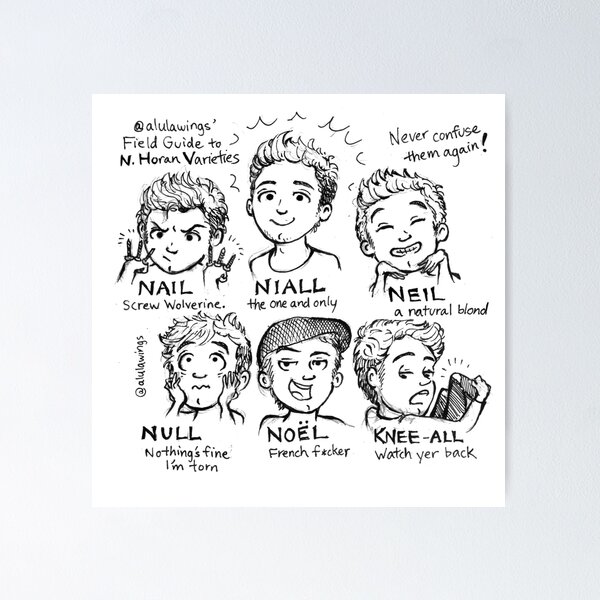 @alulawings'
Field Guide to
N. Horan Varieties
Never confuse
them again!
NAIL
Screw Wolverine.
NIALL
the one and only
NEIL
a natural blond
@alulawings
NULL
Nothing's fine
I'm torn
NOËL
French f*cker
KNEE-ALL
Watch yer back